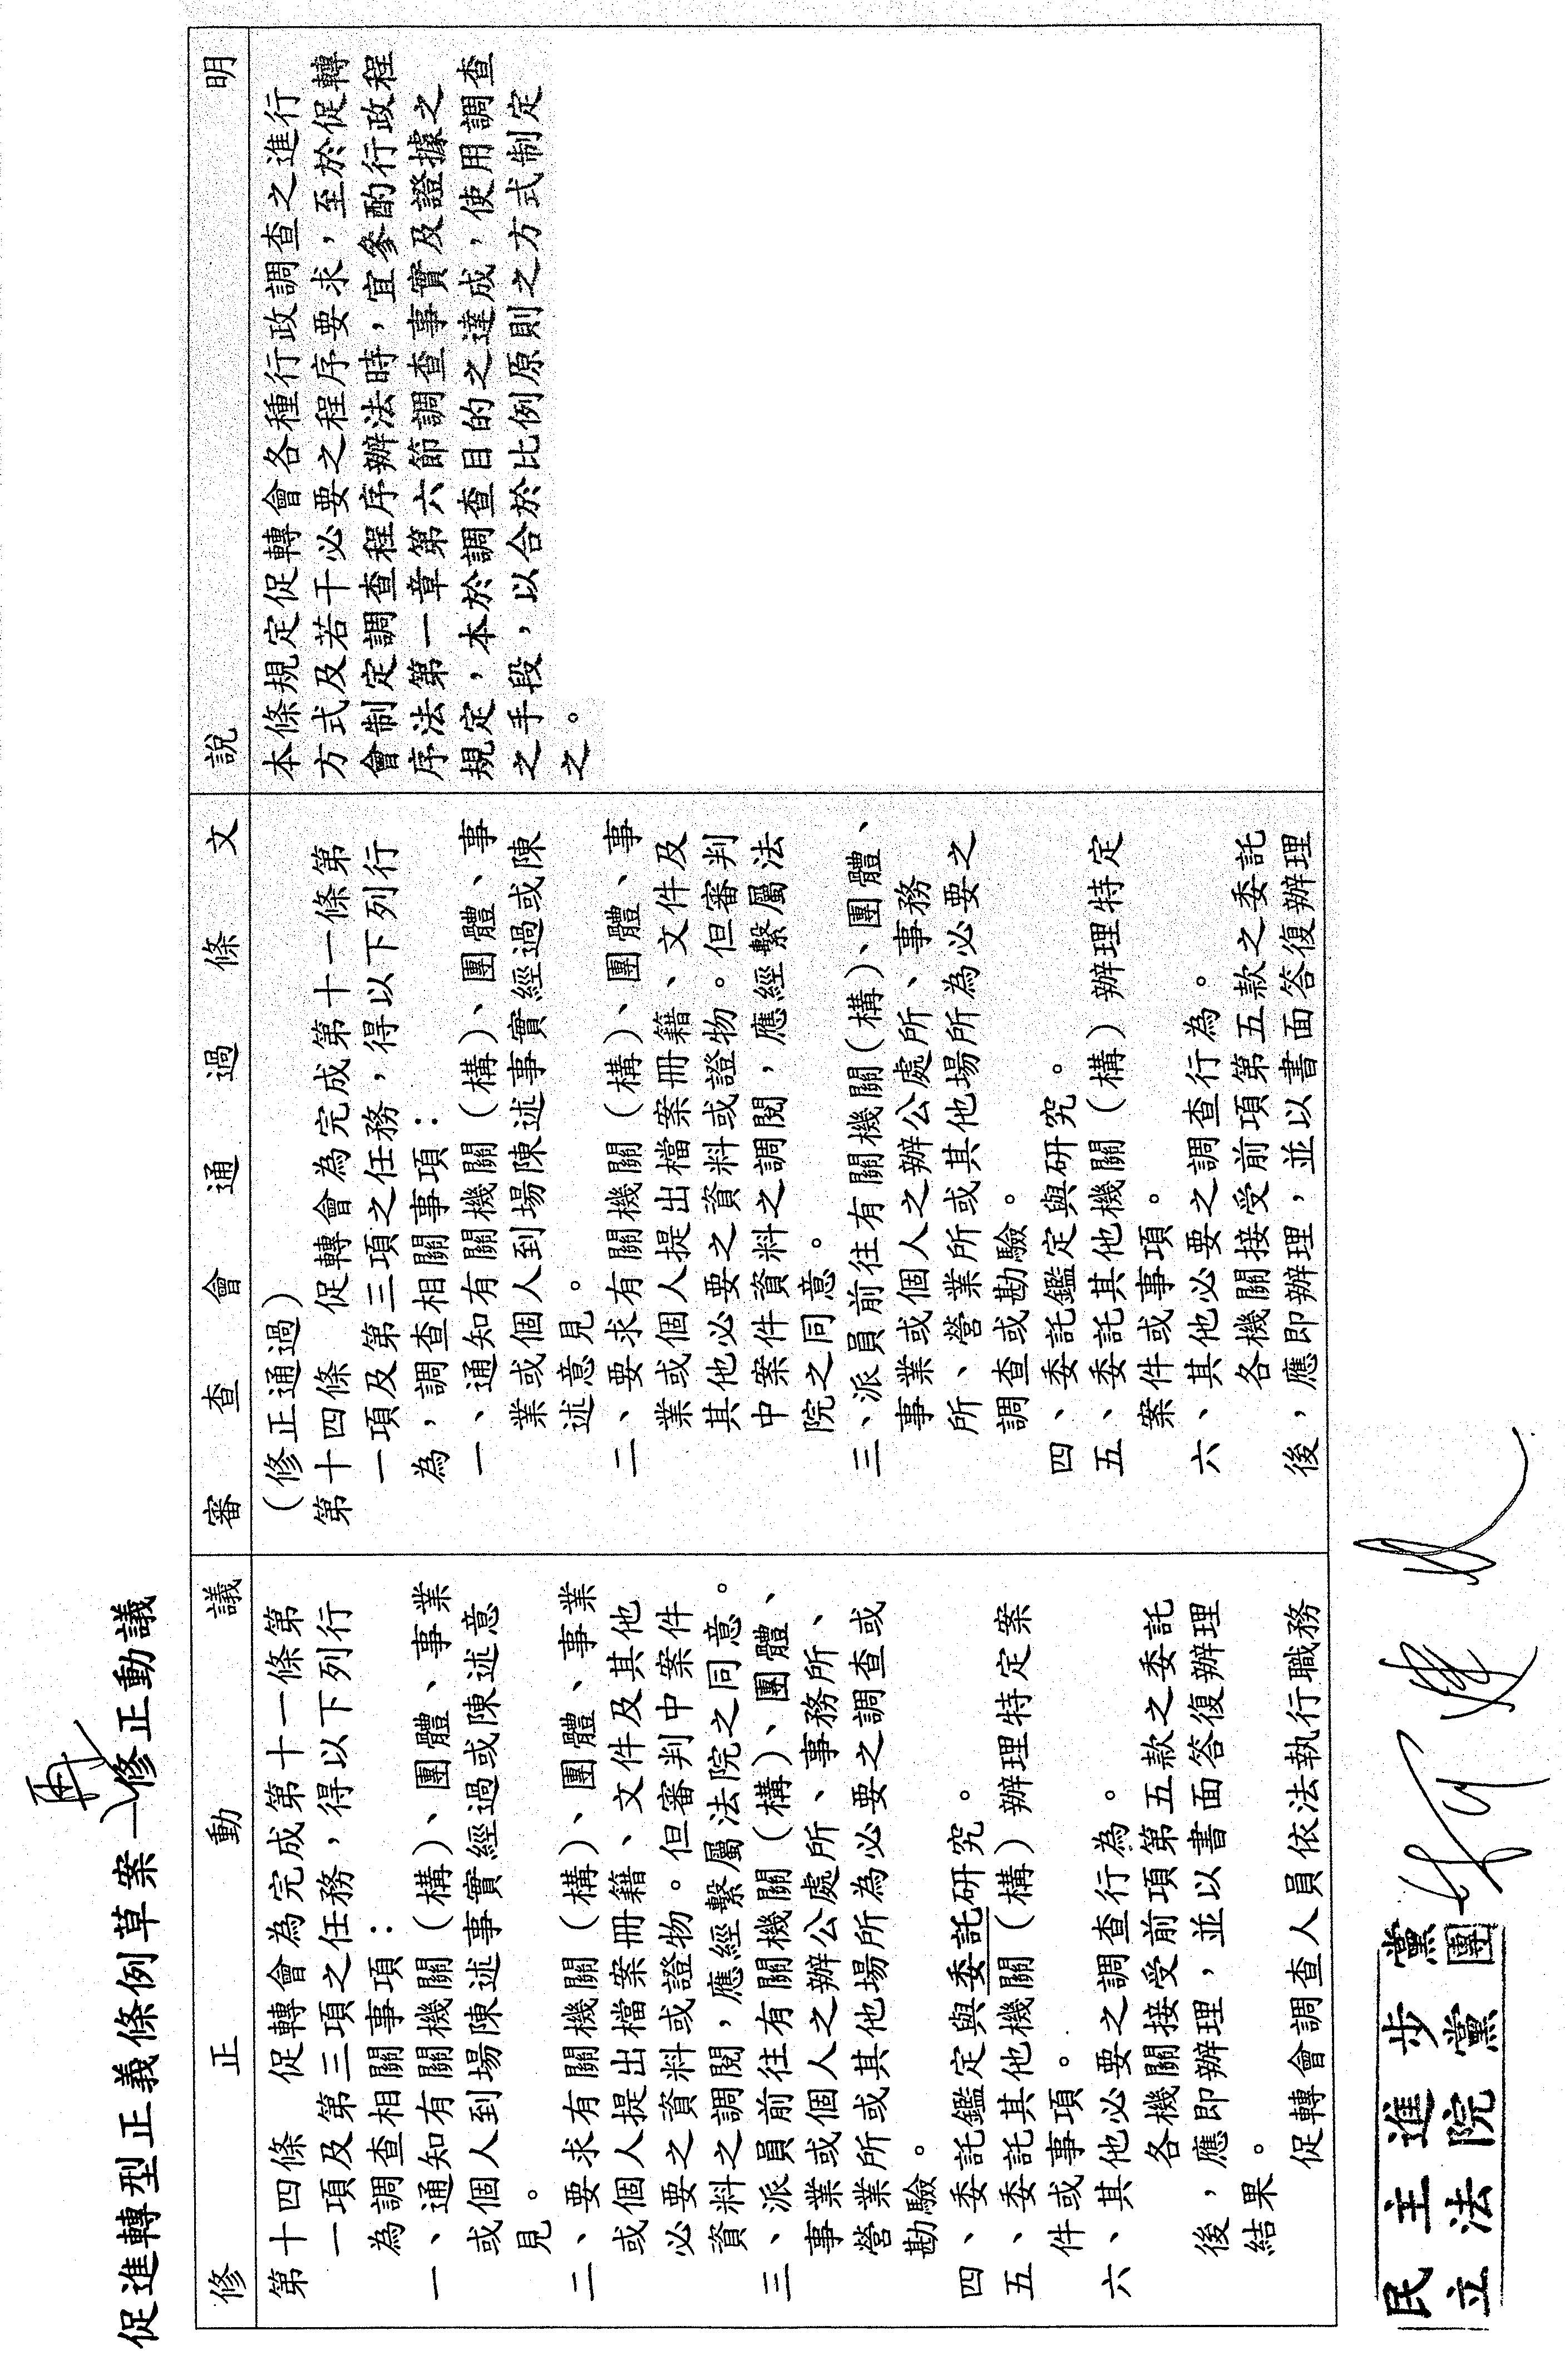 促進轉型正義條例草案—再修正動議
修正動議
第十四條 促轉會為完成第十一條第
一項及第三項之任務,得以下列行
為調查相關事項:
一、通知有關機關(構)、團體、事業
或個人到場陳述事實經過或陳述意
見。
二、要求有關機關(構)、團體、事業
或個人提出檔案冊籍、文件及其他
必要之資料或證物。但審判中案件
資料之調閱,應經繫屬法院之同意。
三、派員前往有關機關(構)、團體、
事業或個人之辦公處所、事務所、
營業所或其他場所為必要之調查或
勘驗。
四、委託鑑定與委託研究。
五、委託其他機關(構)辦理特定案
件或事項。
六、其他必要之調查行為。
各機關接受前項第五款之委託
後,應即辦理,並以書面答復辦理
結果。
促轉會調查人員依法執行職務
審查會通過條文
(修正通過)
第十四條 促轉會為完成第十一條第
一項及第三項之任務,得以下列行
為,調查相關事項:
一、通知有關機關(構)、團體、事
業或個人到場陳述事實經過或陳
述意見。
二、要求有關機關(構)、團體、事
業或個人提出檔案冊籍、文件及
其他必要之資料或證物。但審判
中案件資料之調閱,應經繫屬法
院之同意。
三、派員前往有關機關(構)、團體、
事業或個人之辦公處所、事務
所、營業所或其他場所為必要之
調查或勘驗。
四、委託鑑定與研究。
五、委託其他機關(構)辦理特定
案件或事項。
六、其他必要之調查行為。
各機關接受前項第五款之委託
後,應即辦理,並以書面答復辦理
說明
本條規定促轉會各種行政調查之進行
方式及若干必要之程序要求,至於促轉
會制定調查程序辦法時,宜參酌行政程
序法第一章第六節調查事實及證據之
規定,本於調查目的之達成,使用調查
之手段,以合於比例原則之方式制定
之。
民主進步黨
立法院黨團